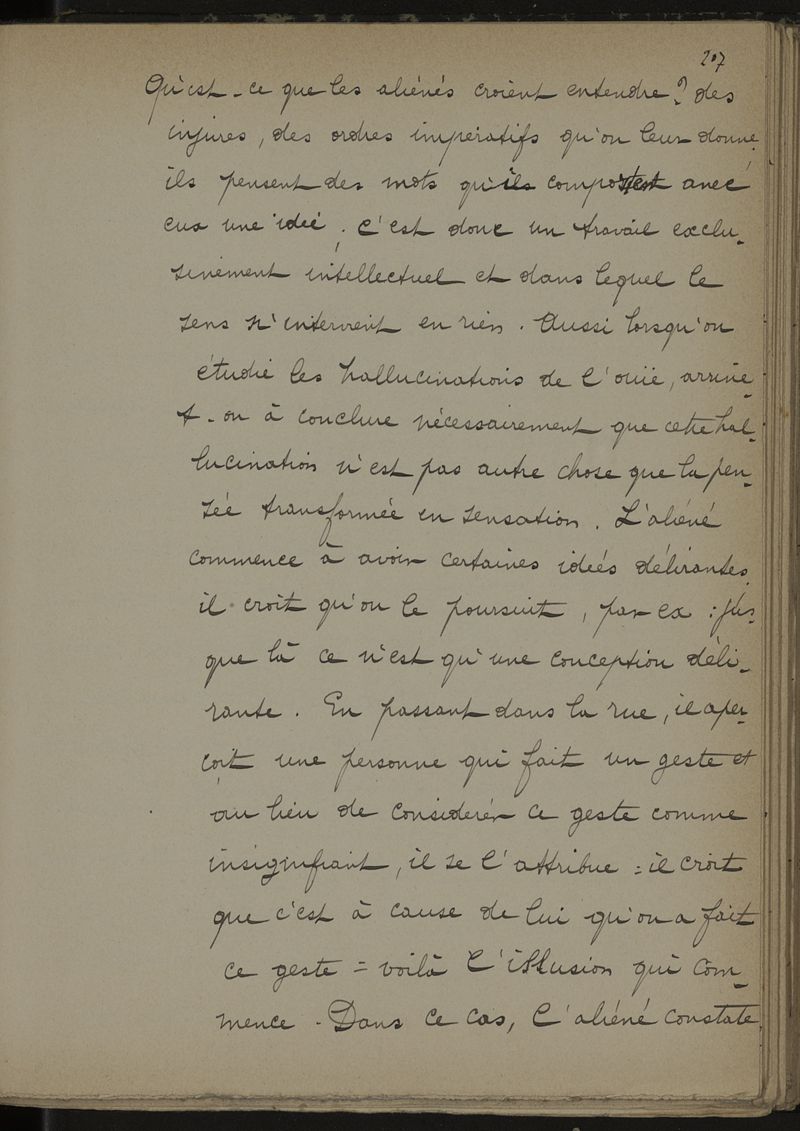 207
Qu'est-ce que les aliénés croient entendre? des
injures, des ordres impératifs qu'on leur donne,
ils pensent des mots qu'ils compostent avec
eux une idée. C'est donc un travail exclu-
sivement intellectuel et dans lequel le
sens n'intervient en rien. Aussi lorsqu'on
étudie les hallucinations de l'ouïe, arrive-
t-on à conclure nécessairement que cette hal-
lucination n'est pas autre chose que la pen-
sée transformée en sensation. L'aliéné
commence à avoir certaines idées délirantes,
il croit qu'on le poursuit, par ex : jus-
que là ce n'est qu'une conception déli-
rante. En passant dans la rue, il aper-
çoit une personne qui fait un geste et
au lieu de considérer ce geste comme
insignifiant, il se l'attribue = il croit
que c'est à cause de lui qu'on a fait
ce geste = voilà l'illusion qui com-
mence. Dans ce cas, l'aliéné constate